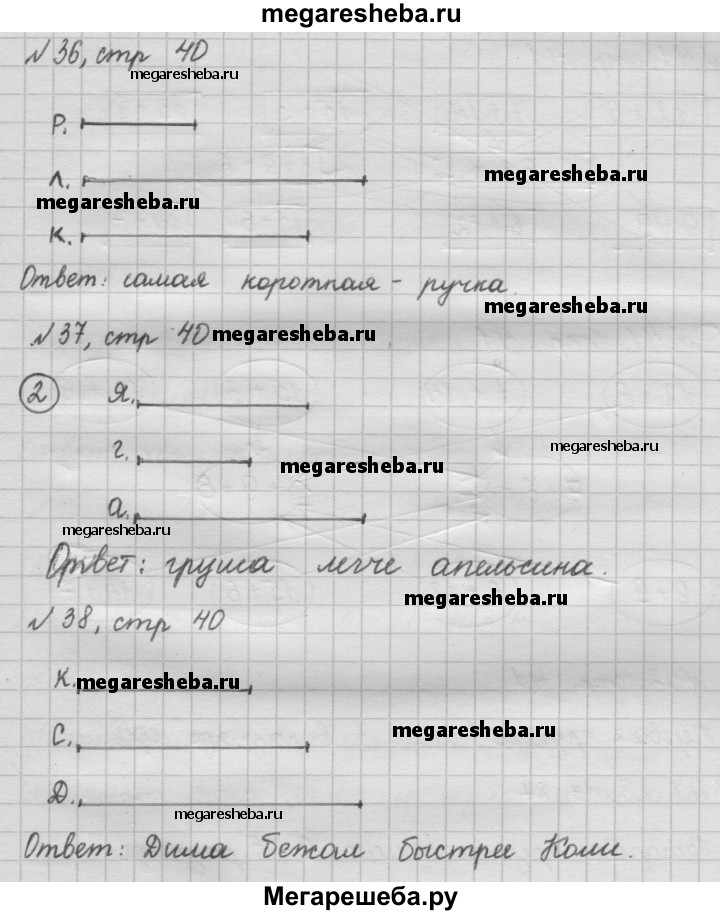 megaresheba.ru
№ 36, стр 40
megaresheba.ru
Р.
Л.
megaresheba.ru
megaresheba.ru
К.
Ответ: самая короткая - ручка.
megaresheba.ru
№ 37, стр 40
megaresheba.ru
2 Я.
г.
megaresheba.ru
megaresheba.ru
а.
megaresheba.ru
Ответ: груша легче апельсина.
megaresheba.ru
№ 38, стр 40
К.
megaresheba.ru
С.
megaresheba.ru
Д.
megaresheba.ru
Ответ: Дима бежал быстрее Коли.
Мегарешеба.ру